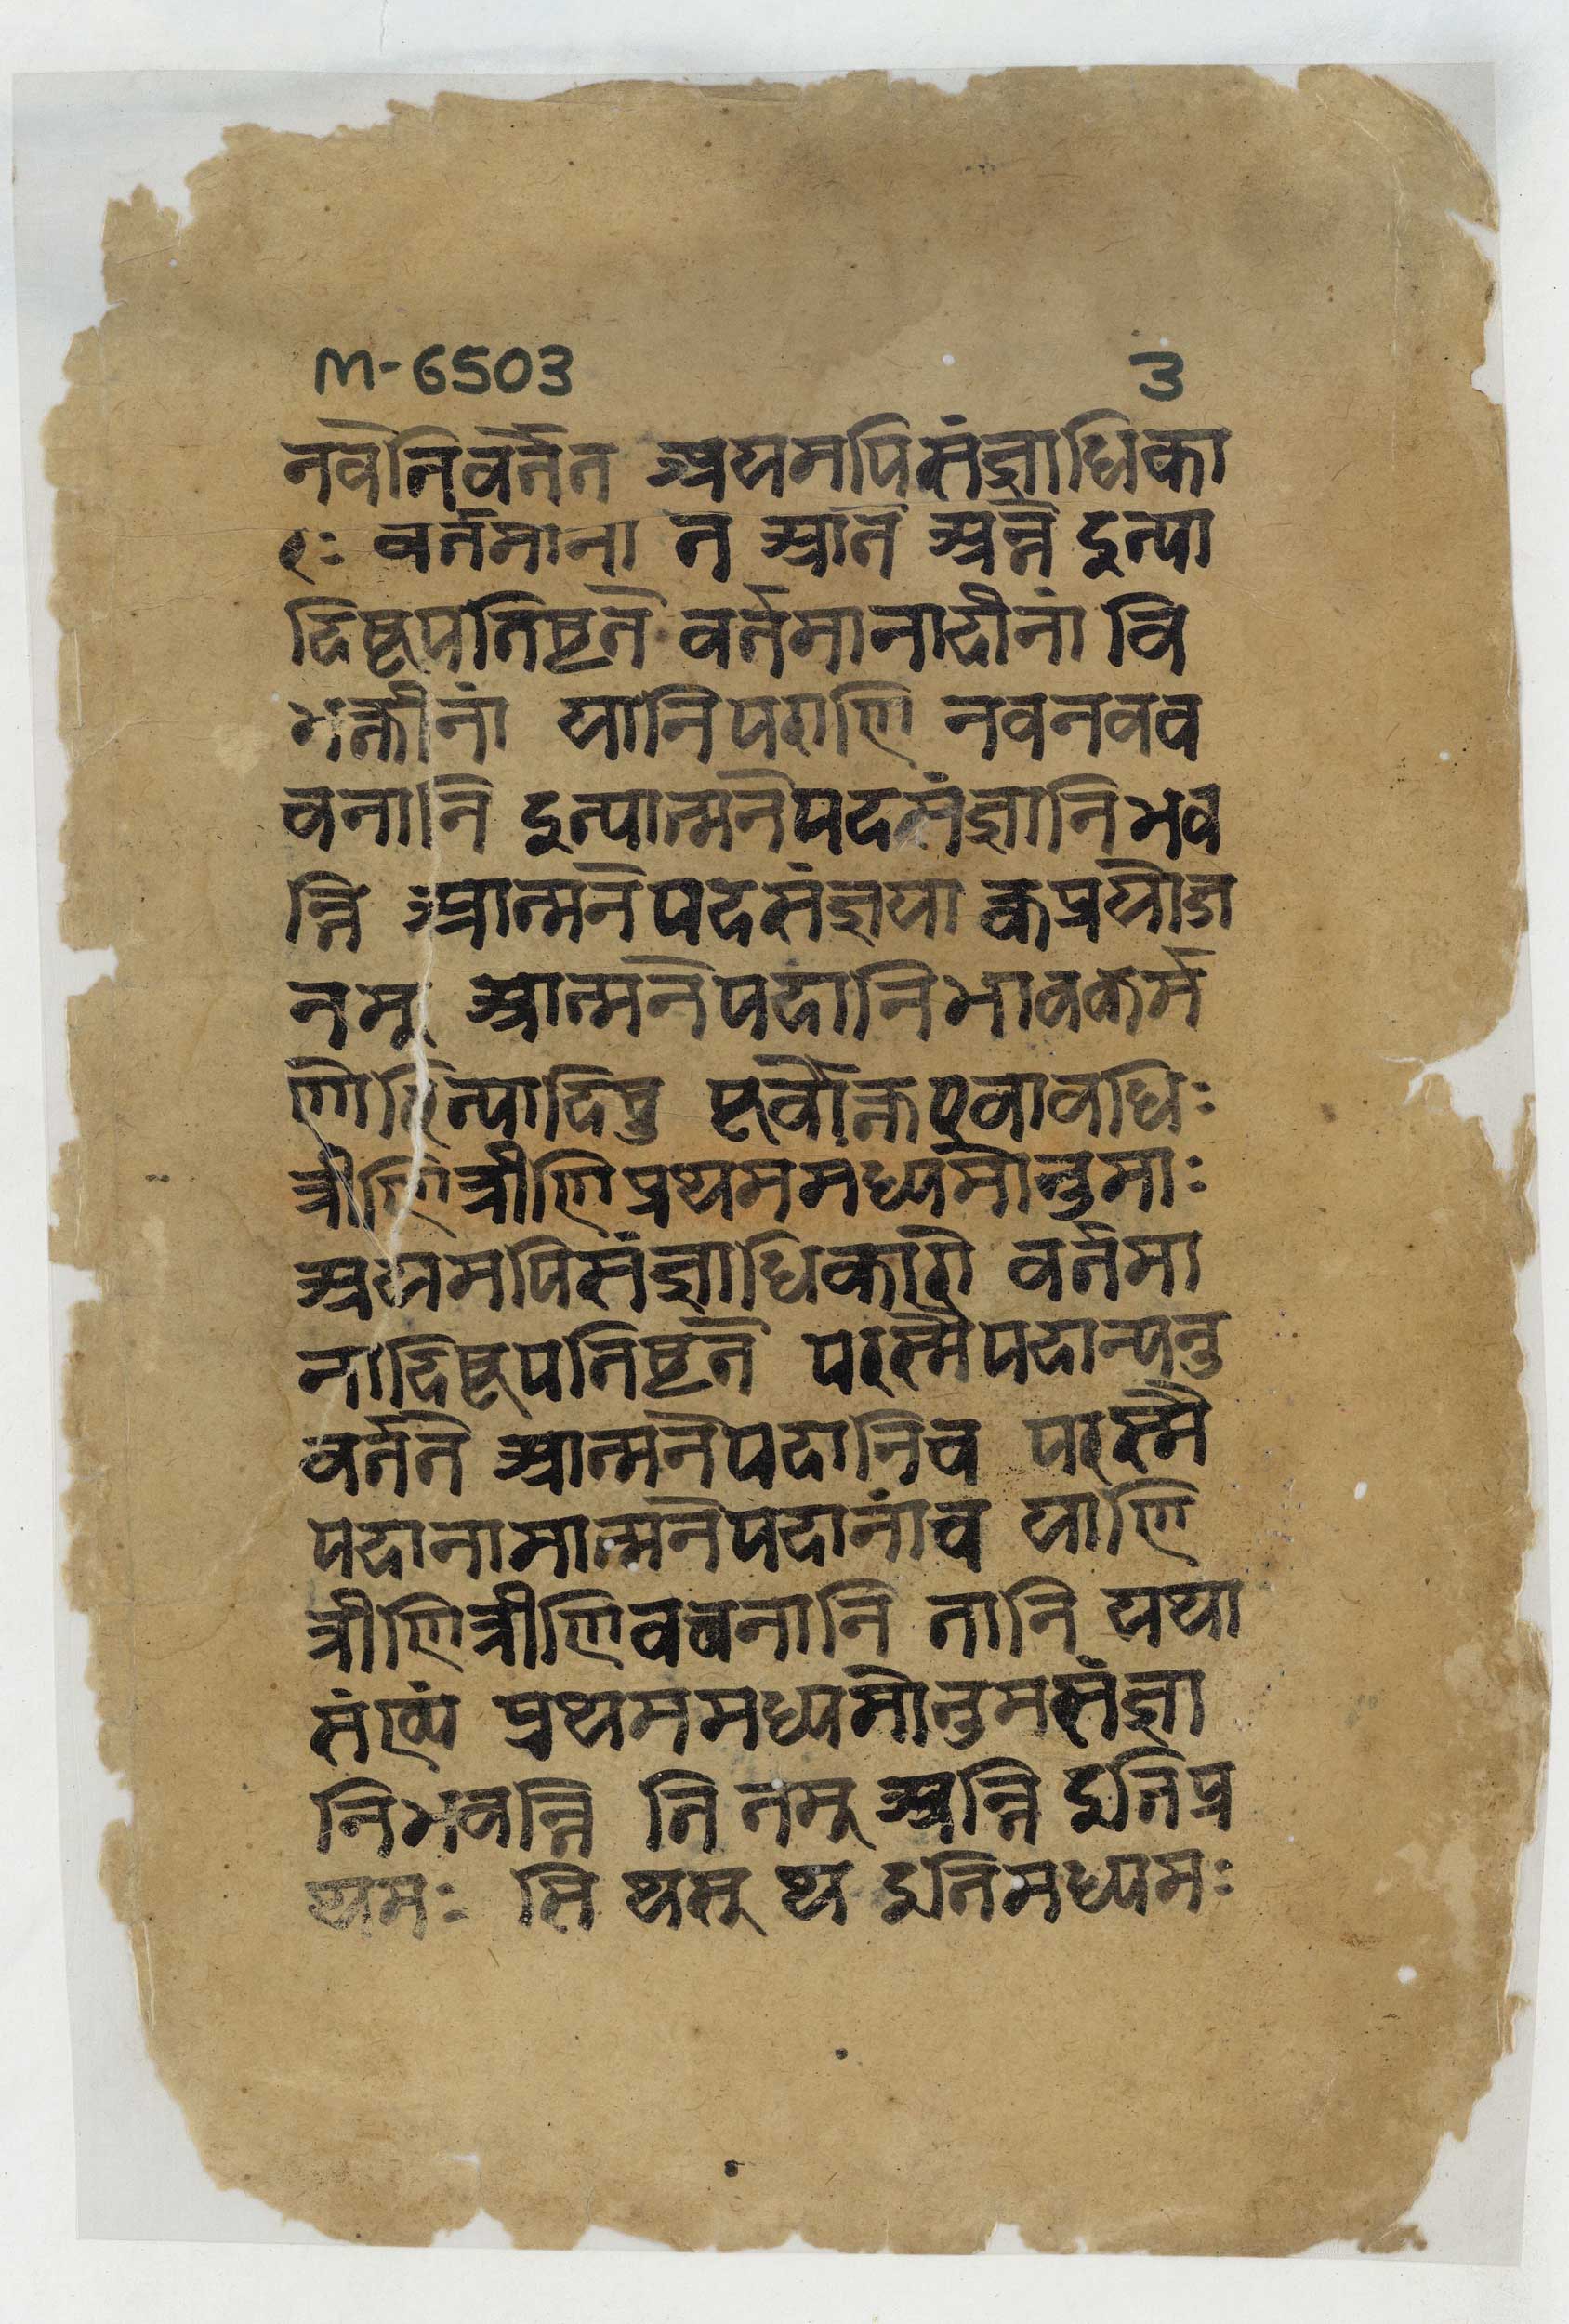 M-6503 3
नवेनिवर्तेत अयमपिसंज्ञाधिका
रः वर्तमाना त आते अन्ते इत्या
दिषूपतिष्टते वर्तमानादीनां वि
भक्तीनां यानिपराणि नवनवव
चनानि इत्यात्मनेपदसंज्ञानिभव
न्ति आत्मनेपदसंज्ञया क्वप्रयोज
नम् आत्मनेपदानिभावकर्म
णोरित्यादिषु पूर्वोक्तएवावधिः
त्रीणित्रीणिप्रथममध्यमोत्तमाः
अयमपिसंज्ञाधिकारो वर्तमा
नादिषूपतिष्टते परस्मैपदान्यनु
वर्तते आत्मनेपदानिच परस्मै
पदानामात्मनेपदानांच याणि
त्रीणित्रीणिवचनानि तानि यथा
संख्यं प्रथममध्यमोत्तमसंज्ञा
निभवन्ति ति तस् अन्ति इतिप्र
थमः सि थस् थ इतिमध्यमः